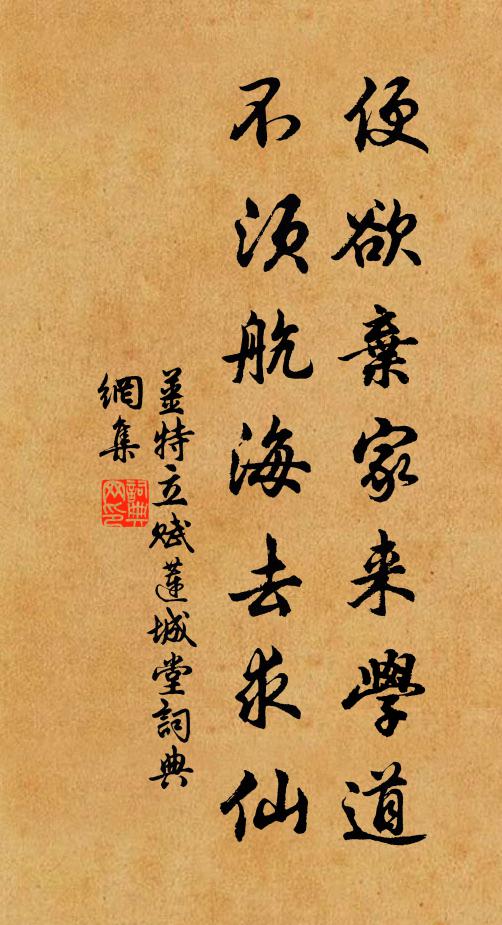 便欲棄家来學道
不須航海去求仙
姜特立賦蓮城堂詞典
網集
詞典網印